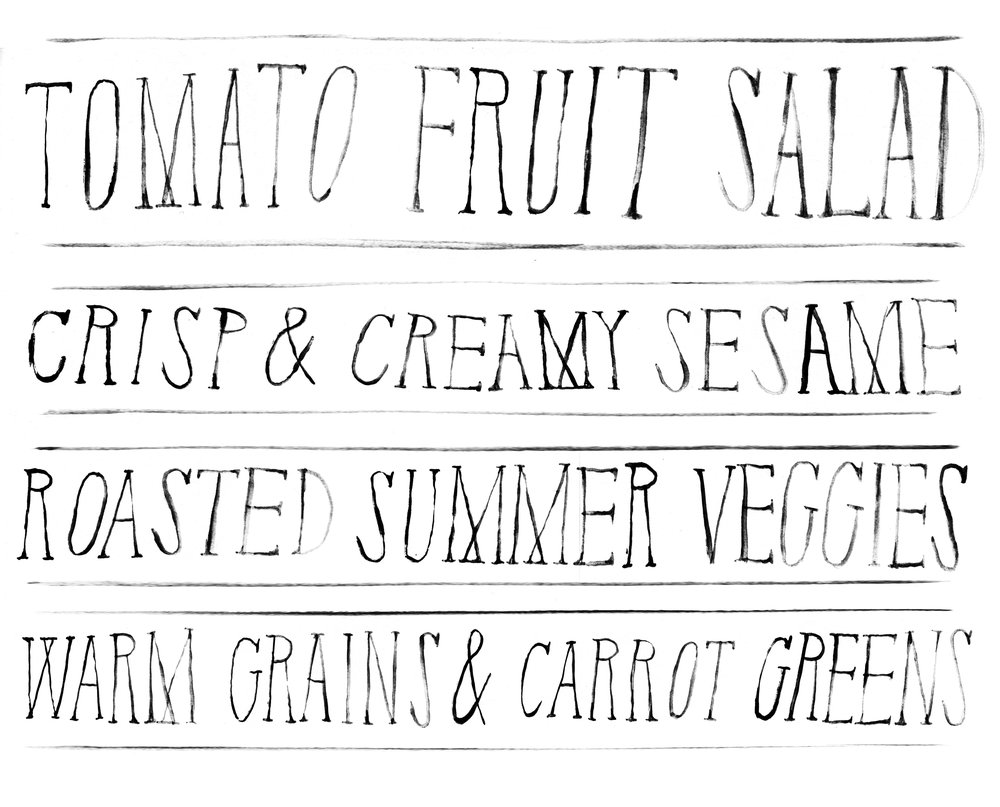 TOMATO FRUIT SALAD
CRISP & CREAMY SESAME
ROASTED SUMMER VEGGIES
WARM GRAINS & CARROT GREENS